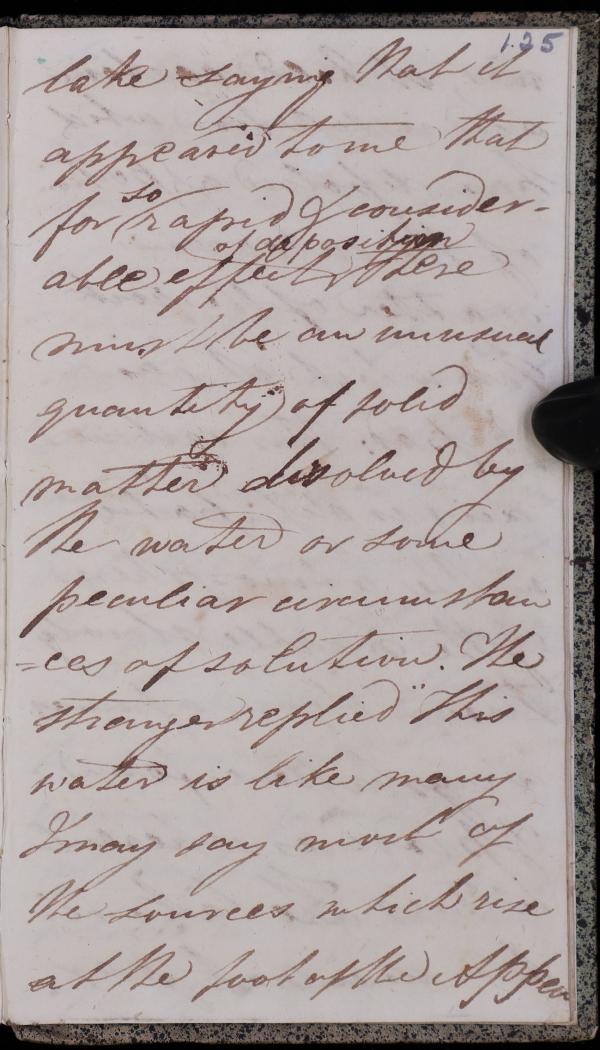 125
lake saying that it
appeared to me that
for so rapid & consider-
able effect of deposition there
must be an unusual
quantity of solid
matter dissolved by
the water or some
peculiar circumstan
=ces of solution. The
stranger replied "This
water is like many
I may say most of
the sources which rise
at the foot of the Appen